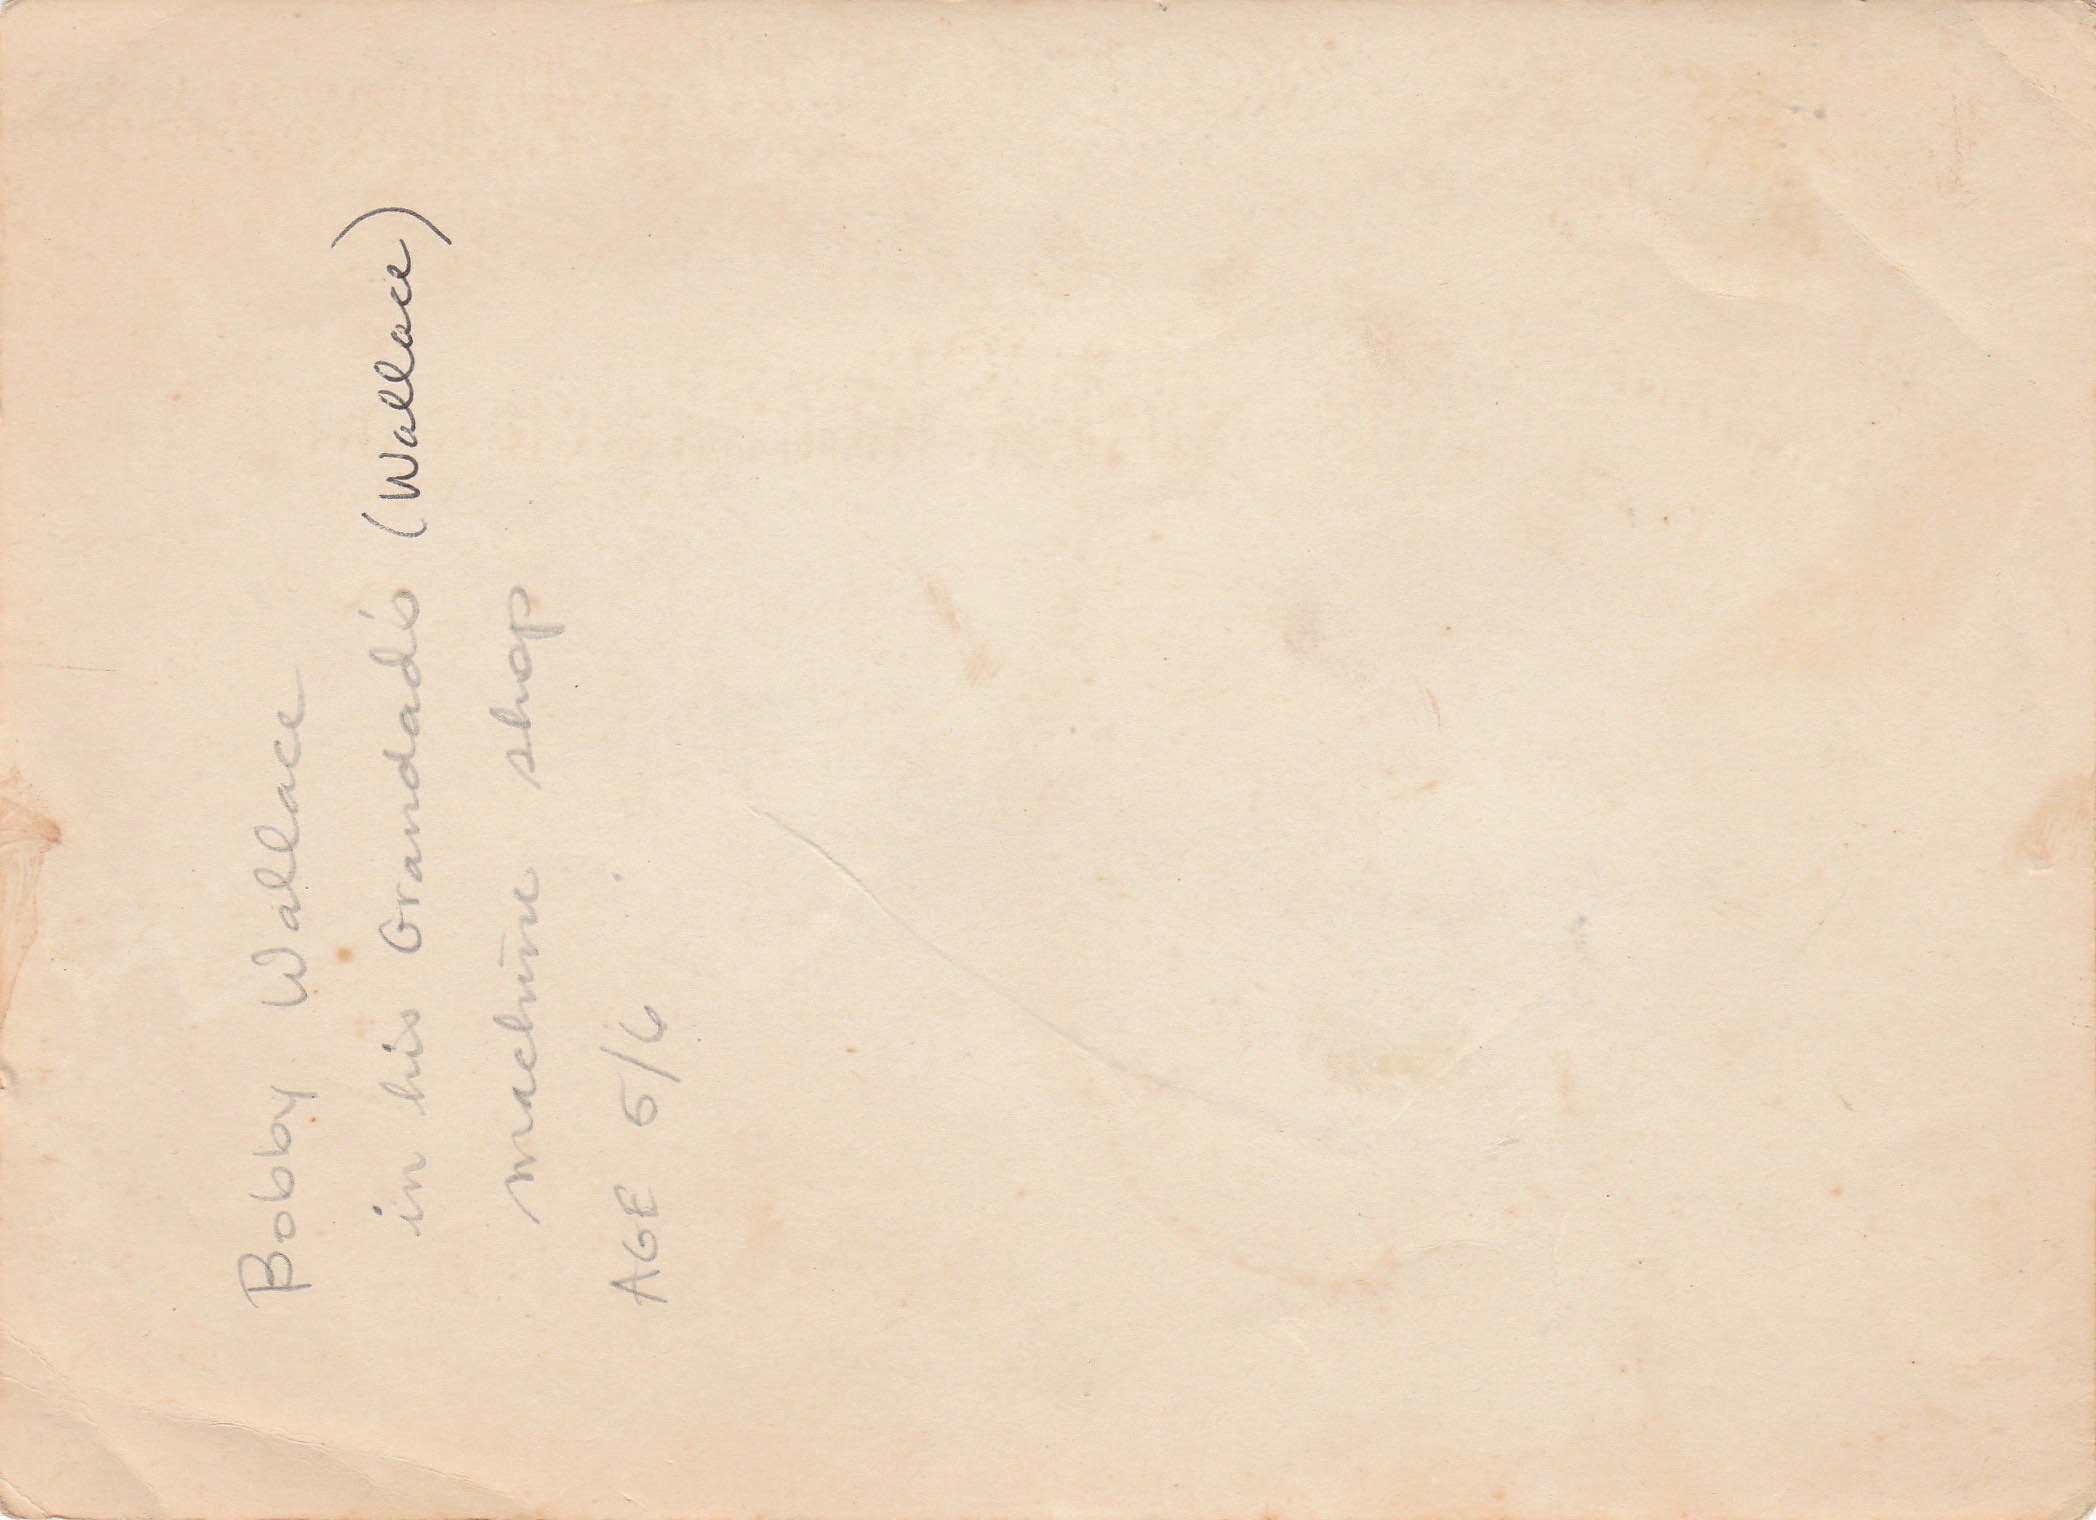 Bobby Wallace
in his Grandad's (Wallace)
machine shop
AGE 5/6